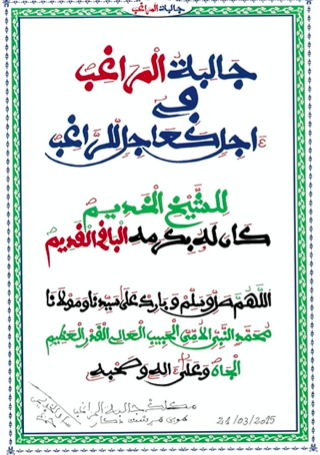 جالبة المراغب
جالبة المراغب
في
اجل كعاجل للراغب
للشيخ الخديم
كان له بكرمه الباقي القديم
اللهم صل وسلم وبارك على سيدنا ومولانا
محمد النبي الامي الحبيب العالي القدر العظيم
الجاه وعلى اله وصحبه
جالبة المراغب
21/03/2015